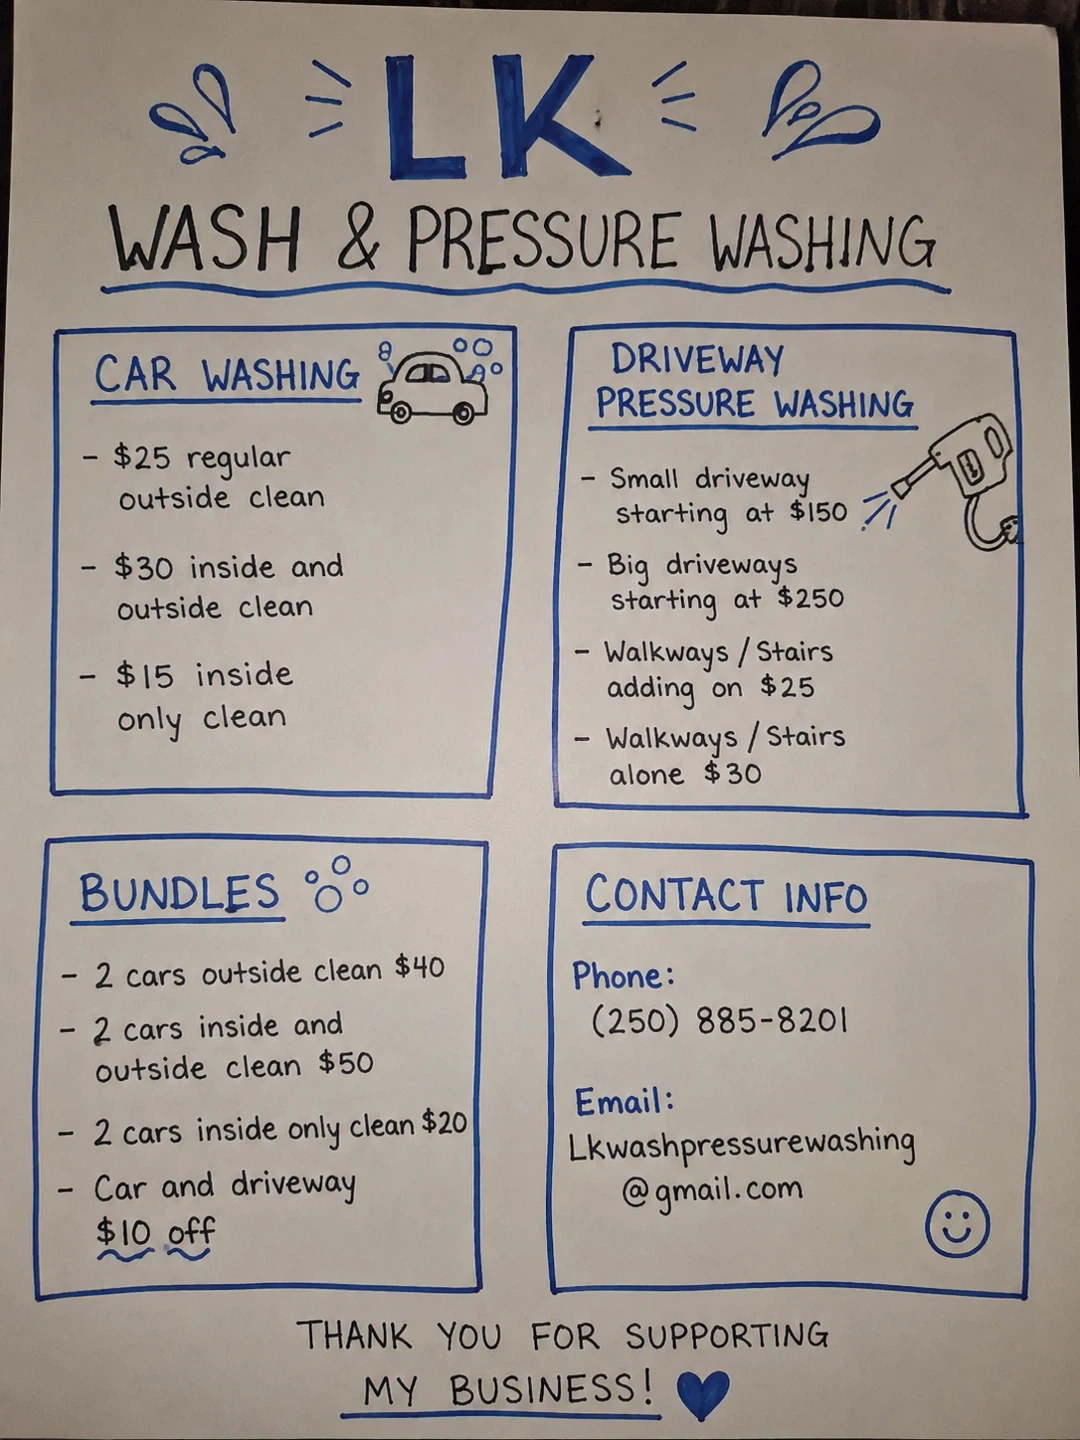 LK
WASH & PRESSURE WASHING
CAR WASHING
- $25 regular
outside clean
- $30 inside and
outside clean
- $15 inside
only clean
DRIVEWAY
PRESSURE WASHING
- Small driveway
starting at $150
- Big driveways
starting at $250
- Walkways / Stairs
adding on $25
- Walkways / Stairs
alone $30
BUNDLES
- 2 cars outside clean $40
- 2 cars inside and
outside clean $50
- 2 cars inside only clean $20
- Car and driveway
$10 off
CONTACT INFO
Phone:
(250) 885-8201
Email:
Lkwashpressurewashing
@gmail.com
THANK YOU FOR SUPPORTING
MY BUSINESS!